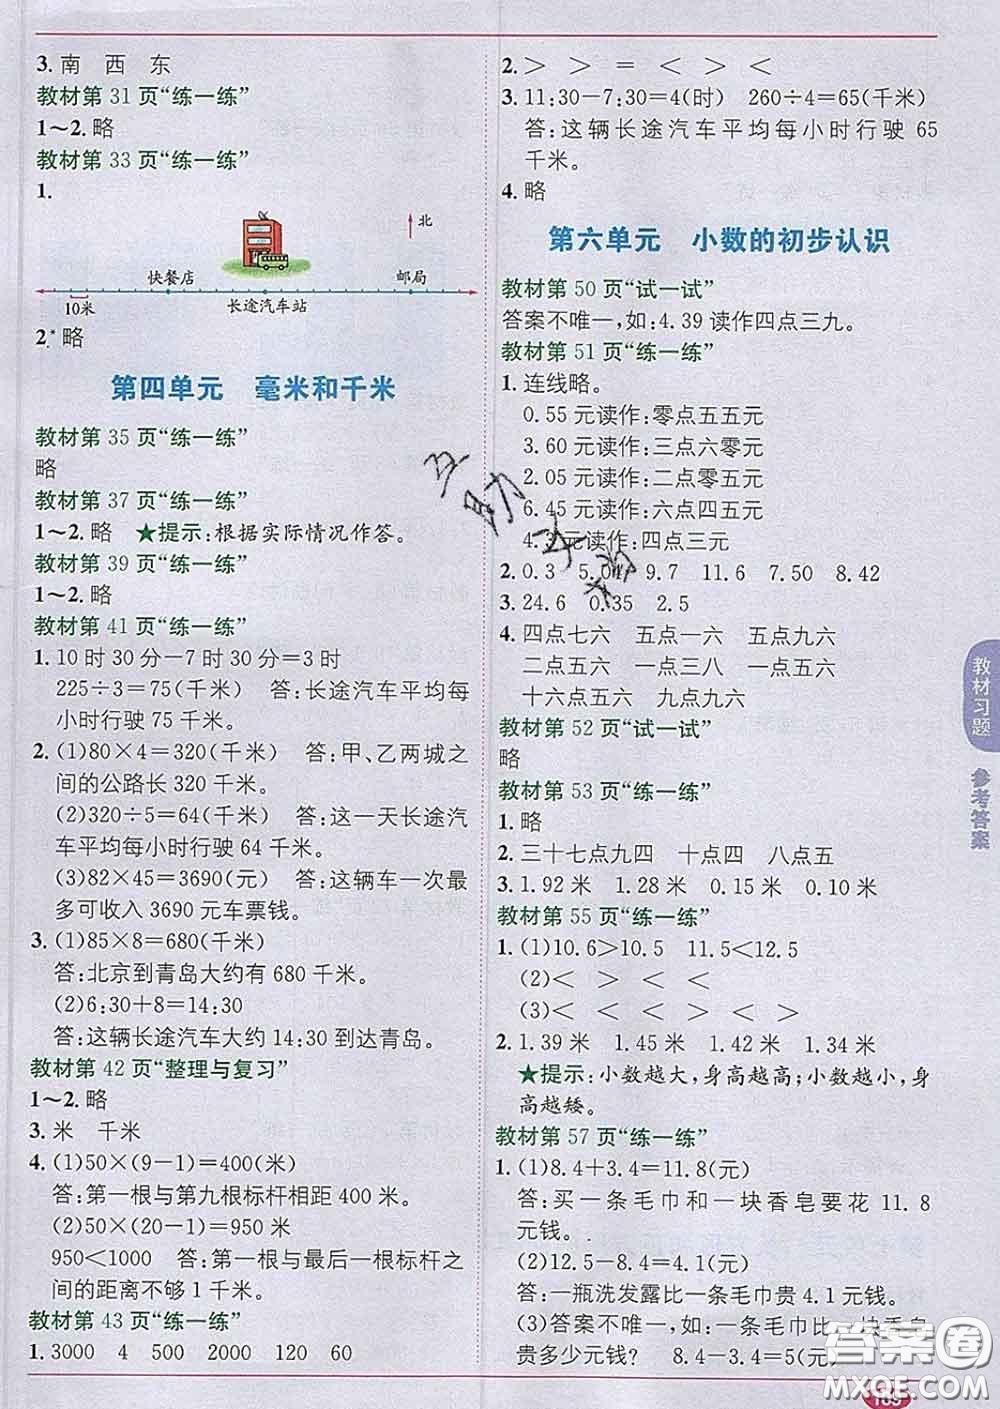 3. 南 西 东
教材第 31 页“练一练”
1～2. 略
教材第 33 页“练一练”
1.
北
快餐店 邮局
10米 长途汽车站
2.* 略
第四单元 毫米和千米
教材第 35 页“练一练”
略
教材第 37 页“练一练”
1～2. 略 ★提示:根据实际情况作答。
教材第 39 页“练一练”
1～2. 略
教材第 41 页“练一练”
1. 10 时 30 分－7 时 30 分＝3 时
225÷3＝75(千米) 答:长途汽车平均每
小时行驶 75 千米。
2. (1)80×4＝320(千米) 答:甲、乙两城之
间的公路长 320 千米。
(2)320÷5＝64(千米) 答:这一天长途汽
车平均每小时行驶 64 千米。
(3)82×45＝3690(元) 答:这辆车一次最
多可收入 3690 元车票钱。
3. (1)85×8＝680(千米)
答:北京到青岛大约有 680 千米。
(2)6:30＋8＝14:30
答:这辆长途汽车大约 14:30 到达青岛。
教材第 42 页“整理与复习”
1～2. 略
3. 米 千米
4. (1)50×(9－1)＝400(米)
答:第一根与第九根标杆相距 400 米。
(2)50×(20－1)＝950 米
950＜1000 答:第一根与最后一根标杆之
间的距离不够 1 千米。
教材第 43 页“练一练”
1. 3000 4 500 2000 120 60
2. ＞ ＞ ＝ ＜ ＞ ＜
3. 11:30－7:30＝4(时) 260÷4＝65(千米)
答:这辆长途汽车平均每小时行驶 65
千米。
4. 略
第六单元 小数的初步认识
教材第 50 页“试一试”
答案不唯一,如:4.39 读作四点三九。
教材第 51 页“练一练”
1. 连线略。
0.55 元读作:零点五五元
3.60 元读作:三点六零元
2.05 元读作:二点零五元
6.45 元读作:六点四五元
4.3 元读作:四点三元
2. 0.3 5.04 9.7 11.6 7.50 8.42
3. 24.6 0.35 2.5
4. 四点七六 五点一六 五点九六
二点五六 一点三八 一点五六
十六点五六 九点九六
教材第 52 页“试一试”
略
教材第 53 页“练一练”
1. 略
2. 三十七点九四 十点四 八点五
3. 1.92 米 1.28 米 0.15 米 0.10 米
教材第 55 页“练一练”
1. (1)10.6＞10.5 11.5＜12.5
(2)＜ ＞ ＜ ＜
(3)＜ ＜ ＜ ＞ ＞
2. 1.39 米 1.45 米 1.42 米 1.34 米
★提示:小数越大,身高越高;小数越小,身
高越矮。
教材第 57 页“练一练”
1. (1)8.4＋3.4＝11.8(元)
答:买一条毛巾和一块香皂要花 11.8
元钱。
(2)12.5－8.4＝4.1(元)
答:一瓶洗发露比一条毛巾贵 4.1 元钱。
(3)答案不唯一,如:一条毛巾比一块香皂
贵多少元钱? 8.4－3.4＝5(元)
教材习题
参考答案
答案圈
MXQE.COM